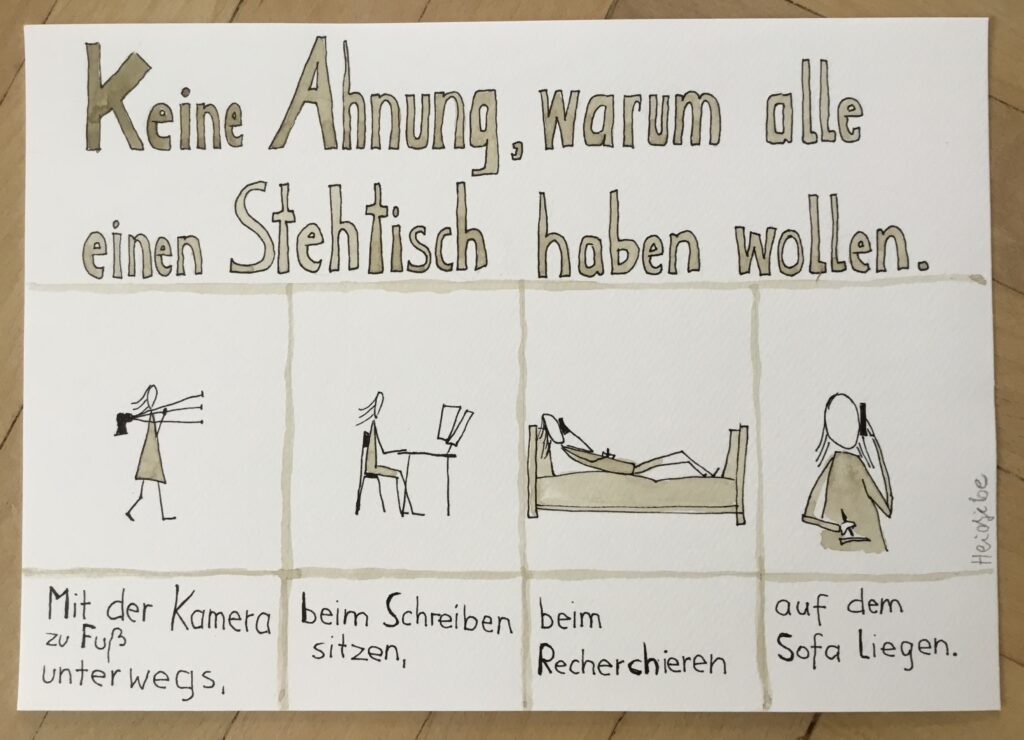 Keine Ahnung, warum alle
einen Stehtisch haben wollen.
Mit der Kamera
zu Fuß
unterwegs,
beim Schreiben
sitzen,
beim
Recherchieren
auf dem
Sofa Liegen.